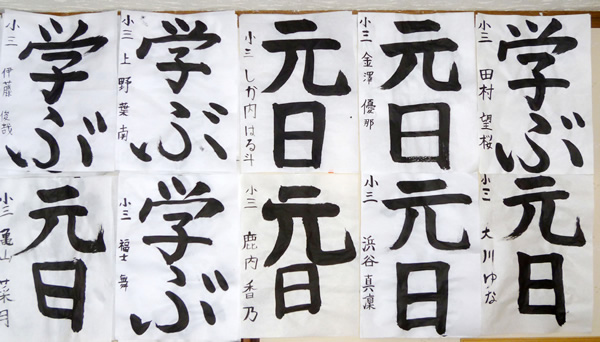 学ぶ
小三 伊藤 俊哉
学ぶ
小三 上野 葉南
元日
小三 しか内 はる斗
元日
小三 金澤 優那
学ぶ
小三 田村 望桜
元日
小三 亀山 菜月
学ぶ
小三 福士 舞
元日
小三 鹿内 香乃
元日
小三 浜谷 真凜
元日
小三 大川 ゆな